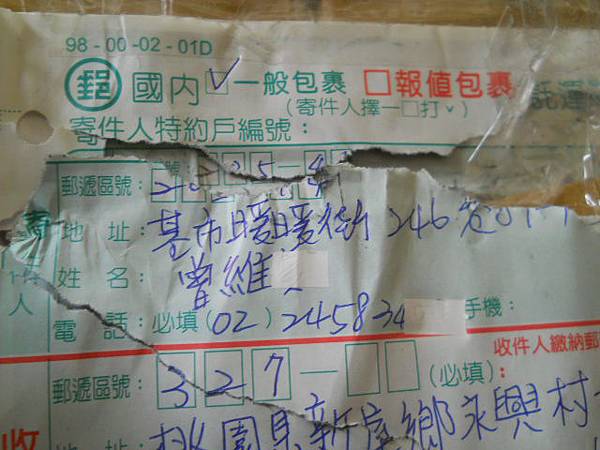 98-00-02-01D
郵 國內 ✓一般包裹 □報值包裹
(寄件人擇一□打✓) 託運
寄件人特約戶編號：
郵遞區號：
地址：基市暖暖街246巷
姓名：曾維
電話：必填(02)245834 手機：
收件人繳納郵
郵遞區號：327-□□ (必填)：
收 地址：桃園縣新屋鄉永興村